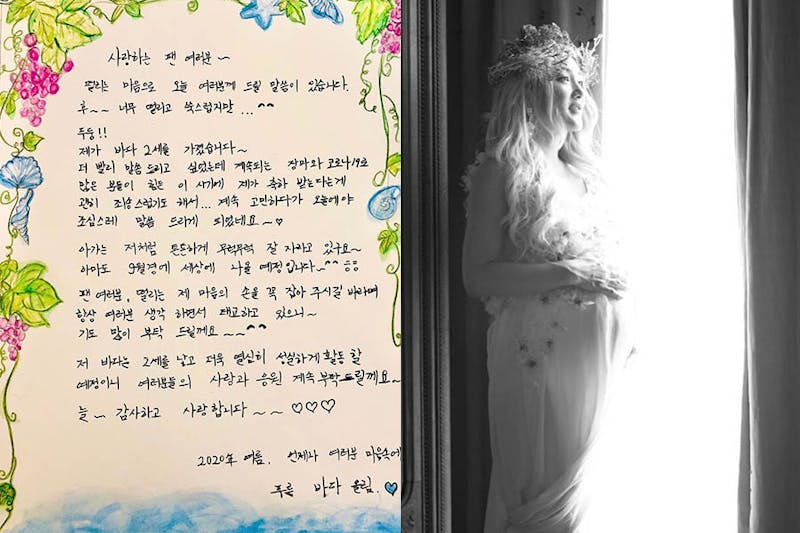 사랑하는 팬 여러분 ~
떨리는 마음으로 오늘 여러분께 드릴 말씀이 있습니다.
후~~ 너무 떨리고 쑥스럽지만 ... ^^
두둥!!
제가 바다 2세를 가졌습니다~
더 빨리 말씀 드리고 싶었는데 계속되는 장마와 코로나19로
많은 분들이 힘든 이 시기에 제가 축하 받는다는게
괜히 죄송스럽기도 해서... 계속 고민하다가 오늘에야
조심스레 말씀 드리게 되었네요~♡
아가는 저처럼 튼튼하게 무럭무럭 잘 자라고 있구요~
아마도 9월경에 세상에 나올 예정입니다~^^ 응응
팬 여러분, 떨리는 제 마음의 손을 꼭 잡아 주시길 바라며
항상 여러분 생각 하면서 태교하고 있으니~
기도 많이 부탁 드릴께요~~^^
저 바다는 2세를 낳고 더욱 열심히 성실하게 활동 할
예정이니 여러분들의 사랑과 응원 계속 부탁 드릴께요~
늘~ 감사하고 사랑합니다~~♡♡♡
2020年 여름. 언제나 여러분 마음속에
푸를 바다 올림.♥